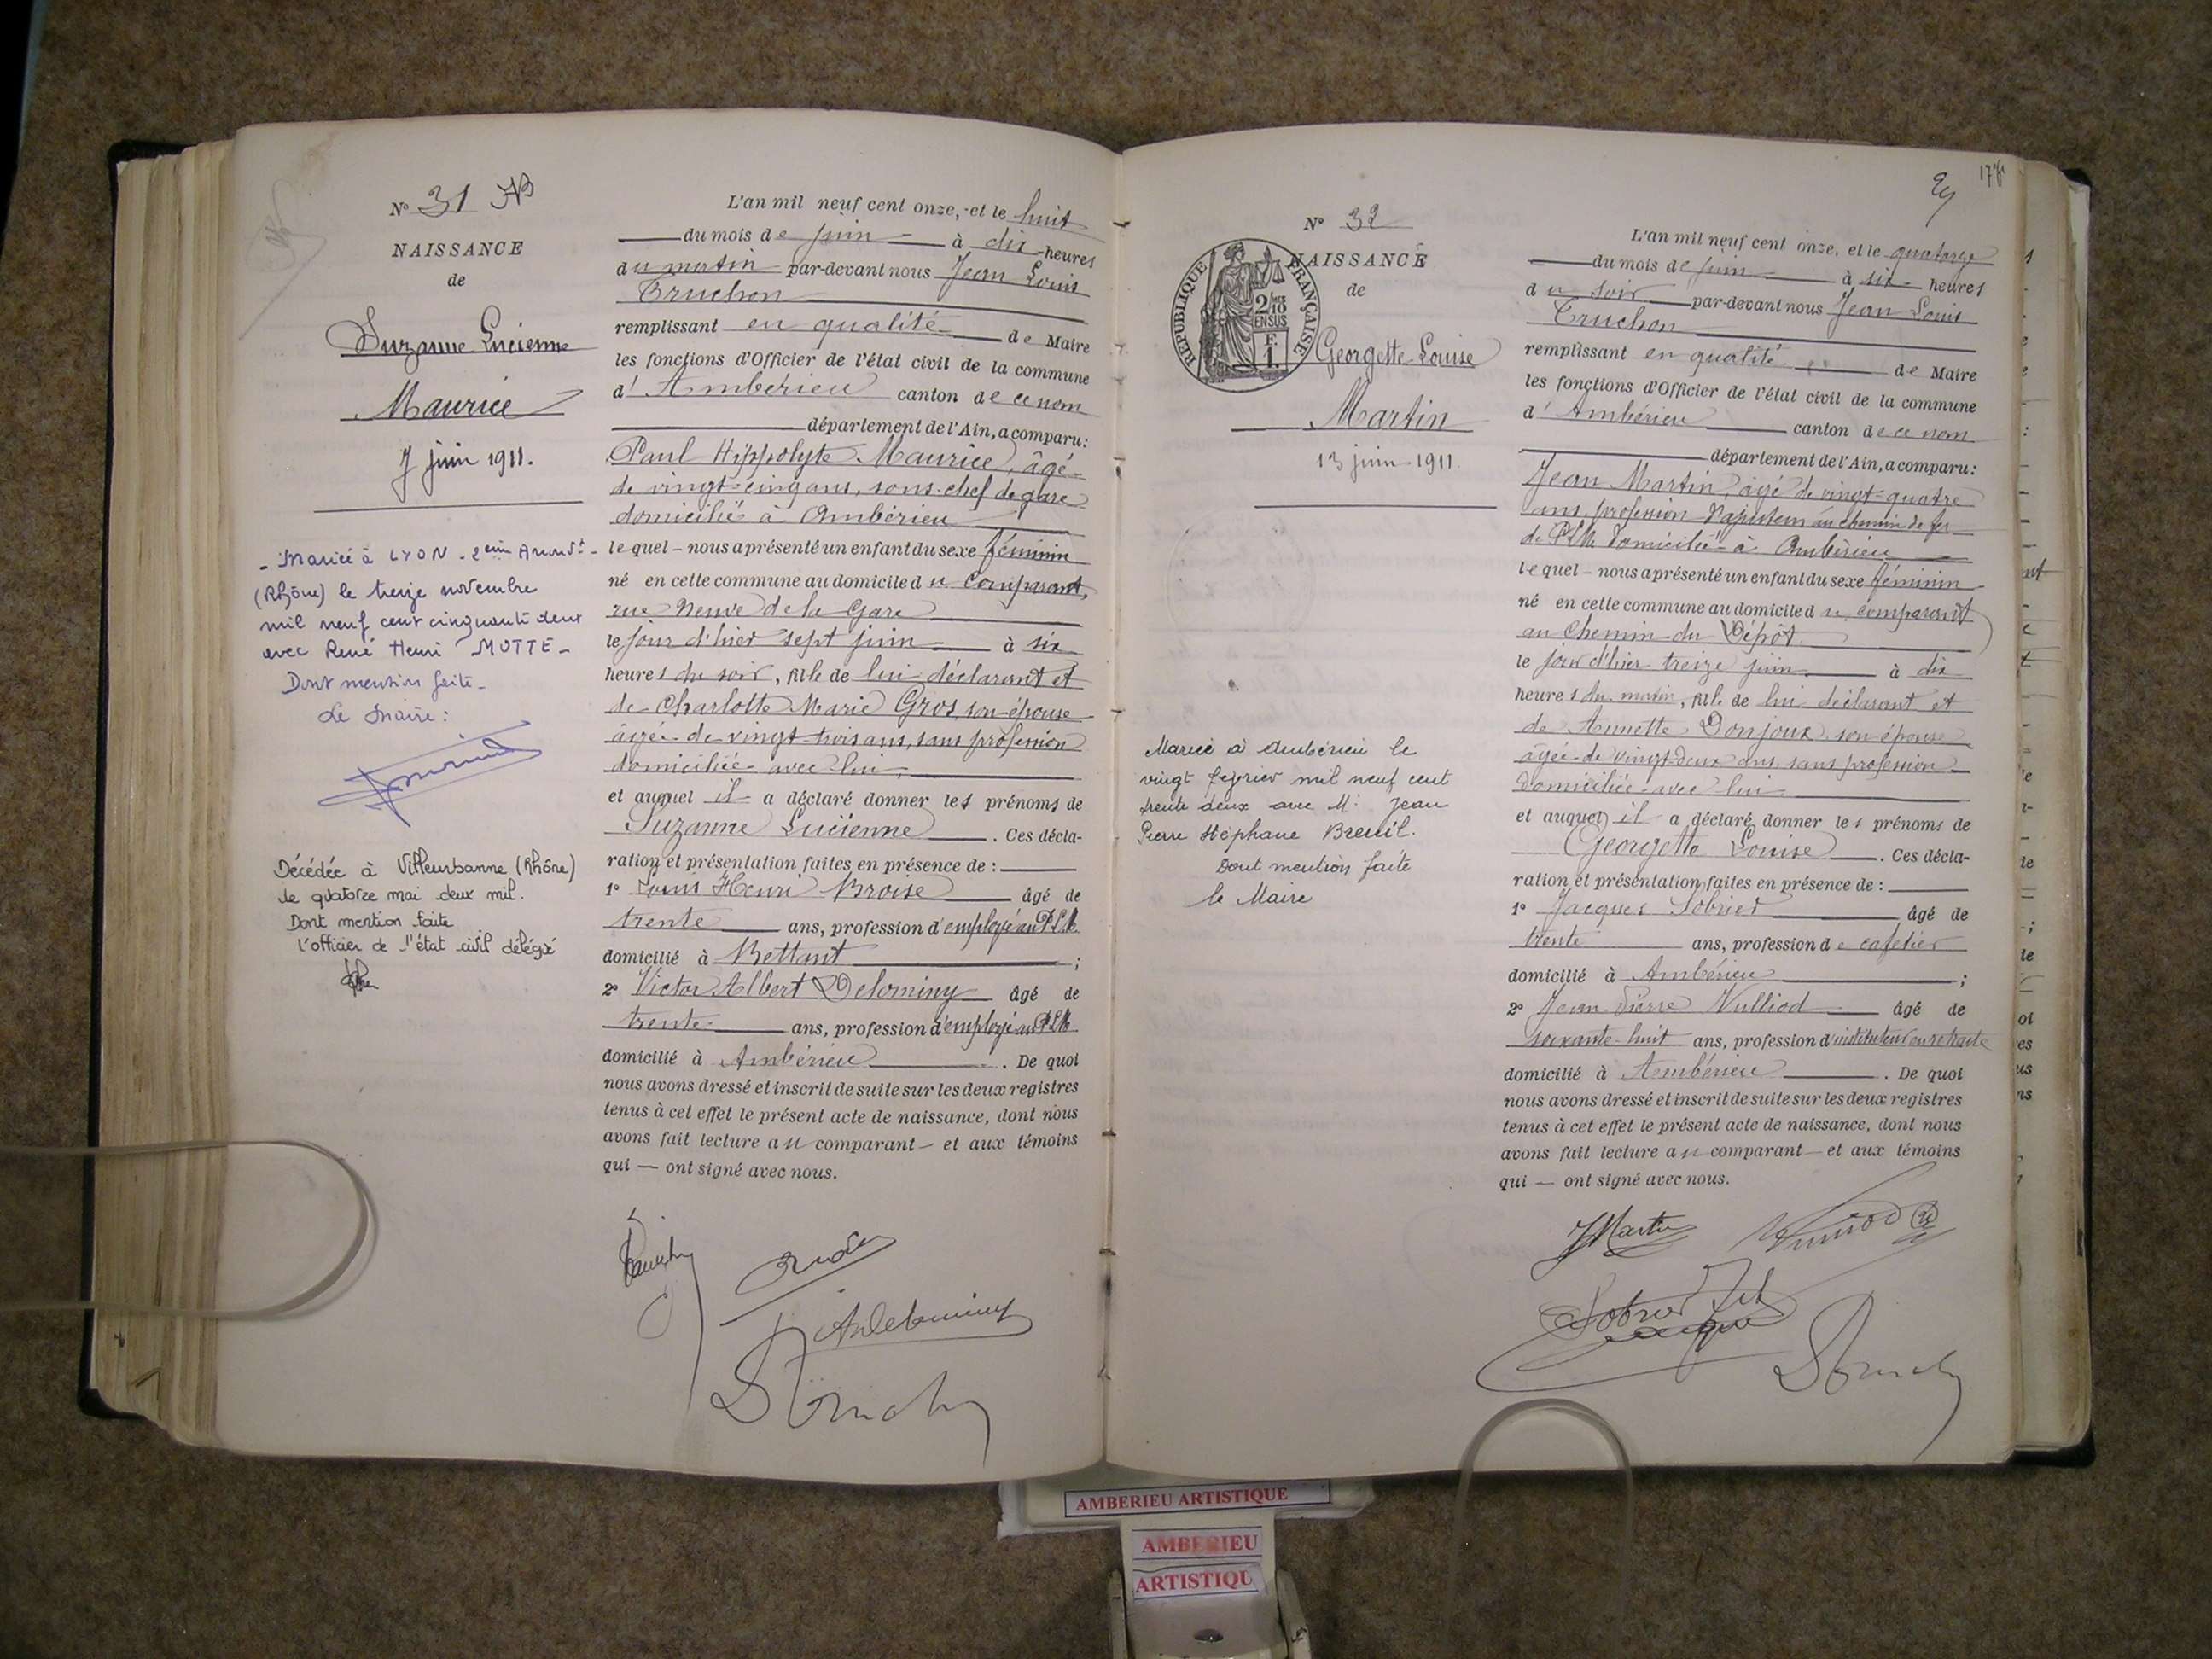 N° 31
NAISSANCE
de
Suzanne Lucienne
Maurice
7 juin 1911.
- Mariée à LYON - 2eme Arrondt -
(Rhône) le treize novembre
mil neuf cent cinquante deux
avec René Henri MOTTE -
Dont mention faite -
Le Maire :
Décédée à Villeurbanne (Rhône)
le quatorze mai deux mil.
Dont mention faite
l'officier de l'état civil délégué
L'an mil neuf cent onze, et le huit
du mois de juin à dix heures
du matin par-devant nous Jean Louis
Truchon
remplissant en qualité de Maire
les fonctions d'Officier de l'état civil de la commune
d'Ambérieu canton de ce nom
département de l'Ain, a comparu :
Paul Hippolyte Maurice, âgé
de vingt-cinq ans, sous-chef de gare
domicilié à Ambérieu
lequel - nous a présenté un enfant du sexe féminin
né en cette commune au domicile du comparant,
rue Neuve de la Gare
le jour d'hier sept juin à six
heures du soir, fille de lui déclarant et
de Charlotte Marie Gros, son épouse
âgée de vingt-trois ans, sans profession
domiciliée avec lui,
et auquel il a déclaré donner les prénoms de
Suzanne Lucienne. Ces décla-
ration et présentation faites en présence de :
1° Louis Henri Broise âgé de
trente ans, profession d'employé au P.L.M.
domicilié à Bettant ;
2° Victor Albert Delominy âgé de
trente ans, profession d'employé au P.L.M.
domicilié à Ambérieu. De quoi
nous avons dressé et inscrit de suite sur les deux registres
tenus à cet effet le présent acte de naissance, dont nous
avons fait lecture au comparant - et aux témoins
qui — ont signé avec nous.
N° 32
NAISSANCE
de
RÉPUBLIQUE FRANÇAISE
2/10 EN SUS
F.
1.
Georgette Louise
Martin
13 juin 1911.
Mariée à Ambérieu le
vingt février mil neuf cent
trente deux avec Mr Jean
Pierre Stéphane Breuil.
Dont mention faite
le Maire
L'an mil neuf cent onze, et le quatorze
du mois de juin à six heures
du soir par-devant nous Jean Louis
Truchon
remplissant en qualité de Maire
les fonctions d'Officier de l'état civil de la commune
d'Ambérieu canton de ce nom
département de l'Ain, a comparu :
Jean Martin, âgé de vingt-quatre
ans, profession au chemin de fer
de P.L.M. domicilié à Ambérieu
lequel - nous a présenté un enfant du sexe féminin
né en cette commune au domicile du comparant
au Chemin du Dépôt.
le jour d'hier treize juin à dix
heures du matin, fille de lui déclarant et
de Annette Donjoux son épouse
âgée de vingt-deux ans sans profession
domiciliée avec lui
et auquel il a déclaré donner les prénoms de
Georgette Louise. Ces décla-
ration et présentation faites en présence de :
1° Jacques Sobrier âgé de
trente ans, profession de cafetier
domicilié à Ambérieu ;
2° Jean Pierre Vulliod âgé de
soixante-huit ans, profession d'instituteur en retraite
domicilié à Ambérieu. De quoi
nous avons dressé et inscrit de suite sur les deux registres
tenus à cet effet le présent acte de naissance, dont nous
avons fait lecture au comparant - et aux témoins
qui — ont signé avec nous.
JMartin
AMBERIEU ARTISTIQUE
AMBERIEU
ARTISTIQU